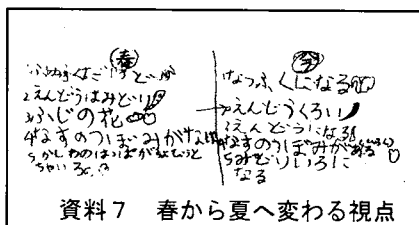 春
2えんどうはみどり
3ふじの花
4なすのつぼみがない
5かしわのはっぱが
ちゃいろ
今
なつふくになる
2えんどうくろい
3えんどうになる
4なすのつぼみがある
5みどりいろに
なる
資料7 春から夏へ変わる視点